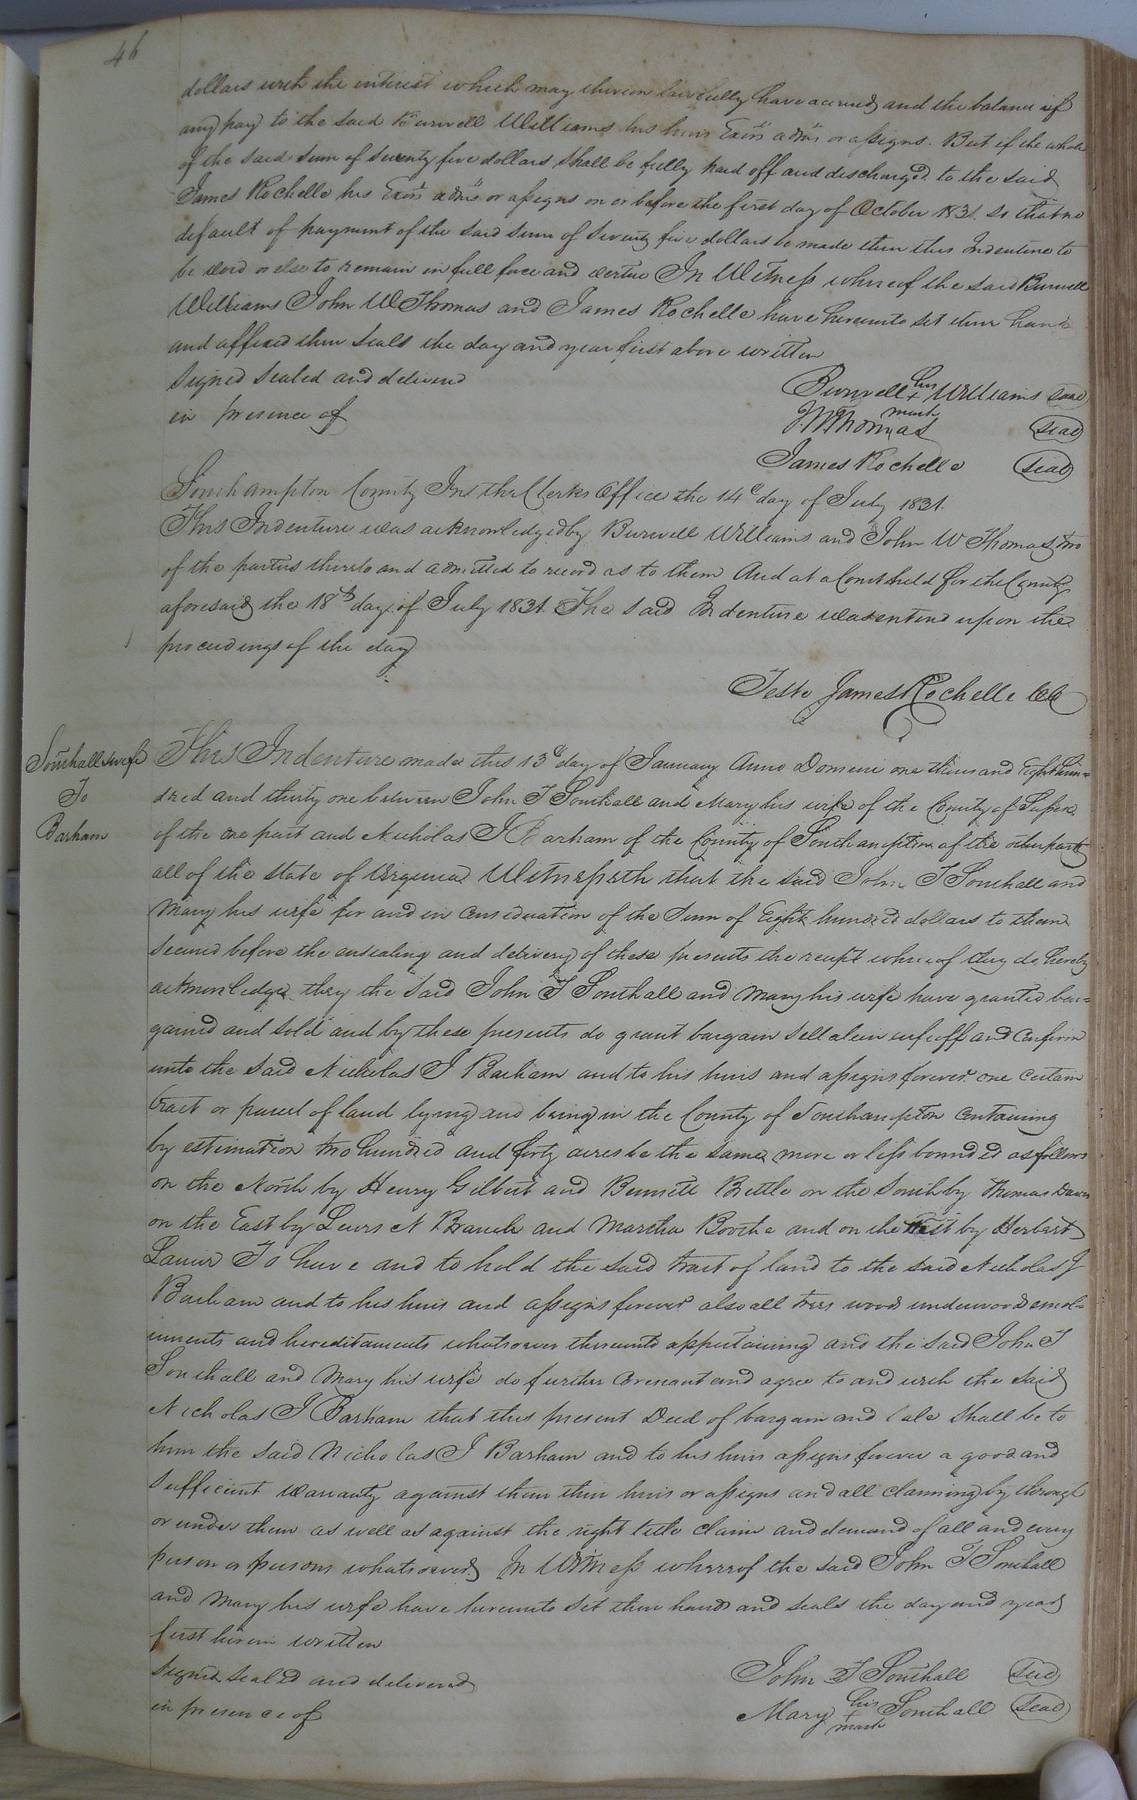 46
dollars with the interest which may thereon lawfully have accrued and the balance if
any pay to the said Burwell Williams his heirs Exors admrs or assigns. But if the whole
of the said sum of seventy five dollars shall be fully paid off and discharged to the said
James Rochelle his Exors admrs or assigns on or before the first day of October 1831. so that no
default of payment of the said sum of seventy five dollars be made then this Indenture to
be void or else to remain in full force and vertue In Witness whereof the said Burwell
Williams John W Thomas and James Rochelle have hereunto set their hands
and affixed their seals the day and year first above written
Signed sealed and delivered
in presence of
Burwell his + mark Williams seal
J W Thomas seal
James Rochelle seal
Southampton County In the Clerks Office the 14th day of July 1831.
This Indenture was acknowledged by Burwell Williams and John W Thomas two
of the parties thereto and admitted to record as to them And at a Court held for the County
aforesaid the 18th day of July 1831. The said Indenture was entered upon the
proceedings of the day
Teste James Rochelle CC
Southall & wife
To
Barham
This Indenture made this 13th day of January Anno Domini one thousand Eight hun=
dred and thirty one between John T Southall and Mary his wife of the County of Sussex
of the one part and Nicholas J Barham of the County of Southampton of the other part
all of the State of Virginia Witnesseth that the said John T Southall and
Mary his wife for and in consideration of the Sum of Eight hundred dollars to them
secured before the ensealing and delivery of these presents the receipt whereof they do hereby
acknowledge they the said John T Southall and Mary his wife have granted bar=
gained and sold and by these presents do grant bargain sell alien enfeoff and confirm
unto the said Nicholas J Barham and to his heirs and assigns forever one certain
tract or parcel of land lying and being in the County of Southampton containing
by estimation two hundred and forty acres be the same more or less bounded as follows
on the North by Henry Gilbert and Bennett Brittle on the South by Thomas Davis
on the East by Lewis N Branch and Martha Boothe and on the West by Herbert
Lanier To have and to hold the said tract of land to the said Nicholas J
Barham and to his heirs and assigns forever also all trees wood underwood emol=
uments and hereditaments whatsoever thereunto appertaining and the said John T
Southall and Mary his wife do further covenant and agree to and with the said
Nicholas J Barham that this present Deed of bargain and Sale shall be to
him the said Nicholas J Barham and to his heirs assigns forever a good and
sufficient warranty against them their heirs or assigns and all claiming by through
or under them as well as against the right title claim and demand of all and every
person or persons whatsoever In Witness whereof the said John T Southall
and Mary his wife have hereunto set their hands and seals the day and year
first herein written
Signed Sealed and delivered
in presence of
John T Southall seal
Mary his + mark Southall seal